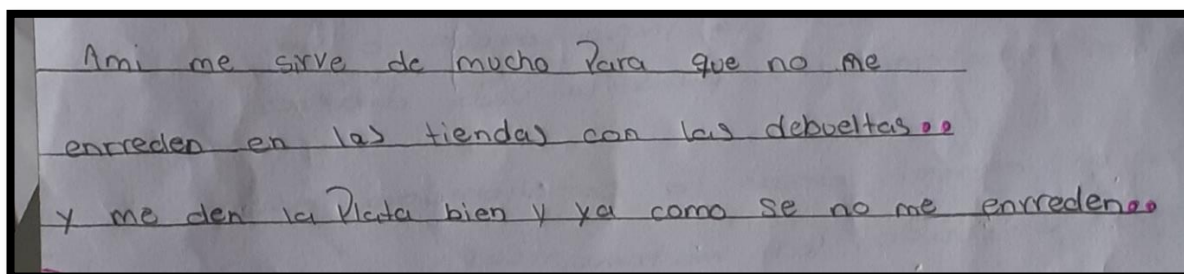 Ami me sirve de mucho Para que no me
enrreden en las tiendas con las debueltas..
y me den la Plata bien y ya como se no me enrreden..